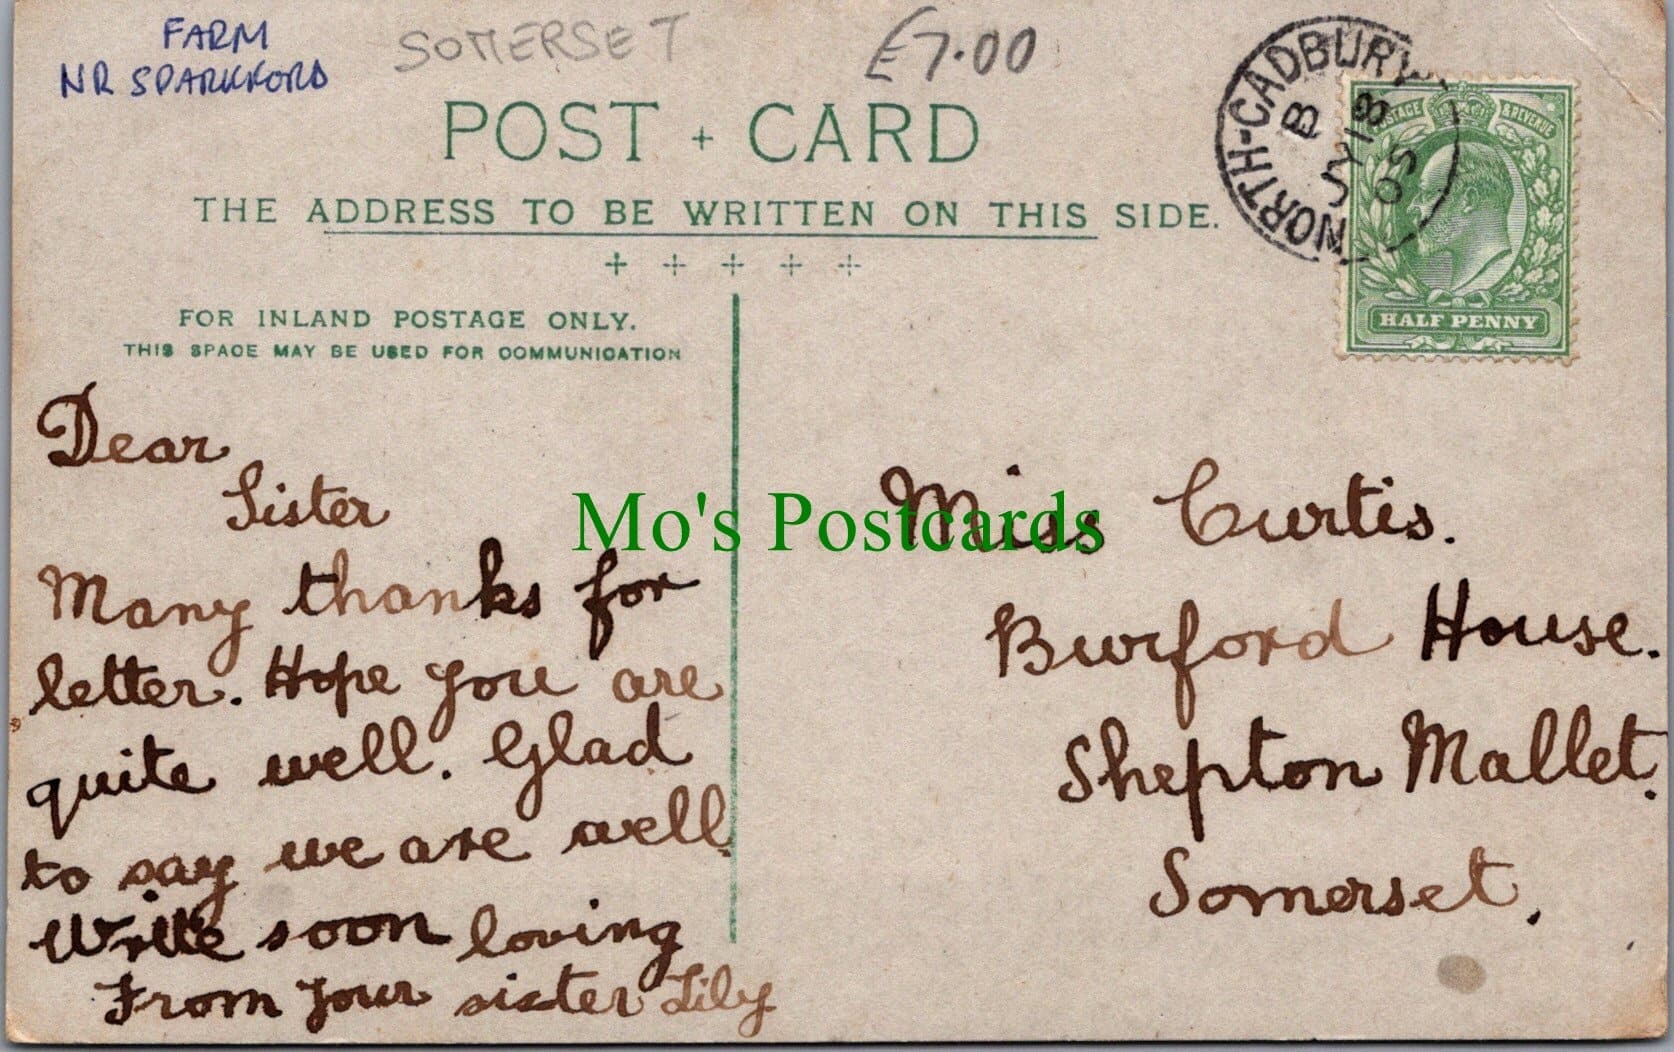 FARM
NR SPARKFORD
SOMERSET
£7.00
POST + CARD
THE ADDRESS TO BE WRITTEN ON THIS SIDE.
NORTH-CADBURY
B
JY 18
05
POSTAGE & REVENUE
HALF PENNY
FOR INLAND POSTAGE ONLY.
THIS SPACE MAY BE USED FOR COMMUNICATION
Dear
Sister
Many thanks for
letter. Hope you are
quite well. Glad
to say we are well.
Write soon loving
From your sister Lily
Mo's Postcards
Miss Curtis.
Burford House.
Shepton Mallet.
Somerset.